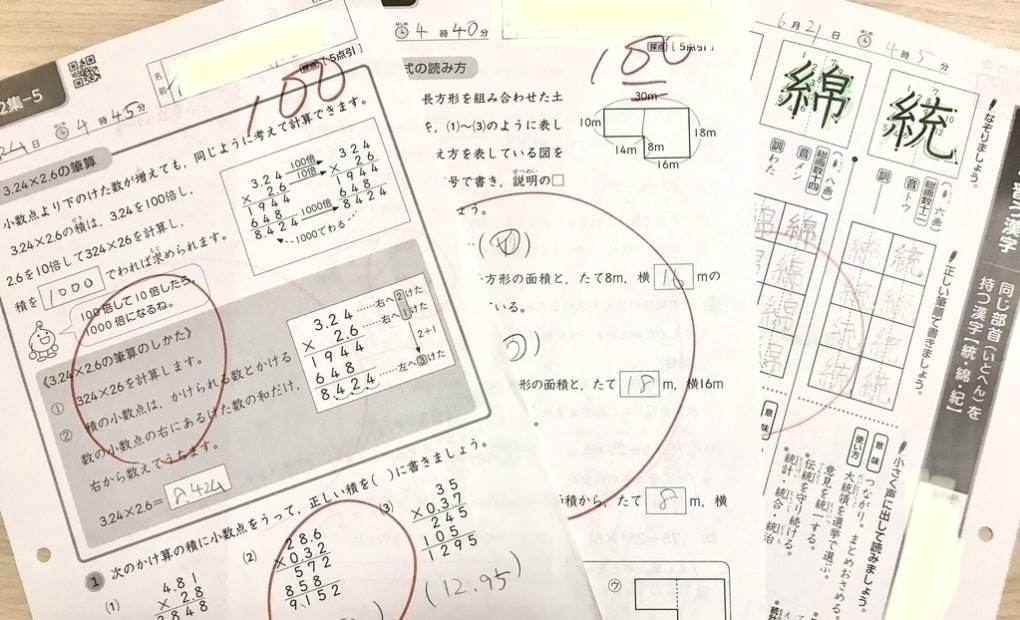 2集-5
24日 4時45分
名
採点 [5点引]
100
3.24×2.6の筆算
小数点より下のけた数が増えても、同じように考えて計算できます。
3.24×2.6の積は、3.24を100倍し、
2.6を10倍して324×26を計算し、
積を 1000 でわれば求められます。
3.24 100倍 324
× 2.6 10倍 × 26
1944 1944
648 648
8.424 1000倍 8424
1000でわる
100倍して10倍したら、
1000倍になるね。
《3.24×2.6の筆算のしかた》
① 324×26を計算します。
② 積の小数点は、かけられる数とかける
数の小数点の右にあるけた数の和だけ、
右から数えてうちます。
3.24……右へ2けた
× 2.6……右へ1けた
1944 2+1
648
8.424……左へ3けた
3.24×2.6= 8.424
1 次のかけ算の積に小数点をうって、正しい積を( )に書きましょう。
(1)
4.81
× 2.8
3848
(2)
28.6
×0.32
572
858
9.152
(3)
35
×0.37
245
105
1295
(12.95)
はじめ 4時40分
採点 [5点引]
100
式の読み方
長方形を組み合わせた土
(1)～(3)のように表し
え方を表している図を
号で書き、説明の□
ょう。
30m
10m
18m
14m
8m
16m
方形の面積と、たて8m、横 16 mの
いる。
形の面積と、たて 18 m、横16m
積から、たて 8 m、横
ウ
6月21日 はじめ 4時5分
なぞりましょう。
統
綿
(六画)
総画数十二
音 トウ
訓
(八画)
総画数十四
音 メン
訓 わた
正しい筆順で書きましょう。
統 統 統 統 統 統
綿 綿 綿 綿 綿
同じ部首(いとへん)を
持つ漢字【統・綿・紀】
小さく声に出して読みましょう。
意味 つながり。まとめおさめる。
使い方 大統領を選挙で選ぶ。
意見を統一する。
*伝統を守り続ける。
*統計・統合・統治
意味